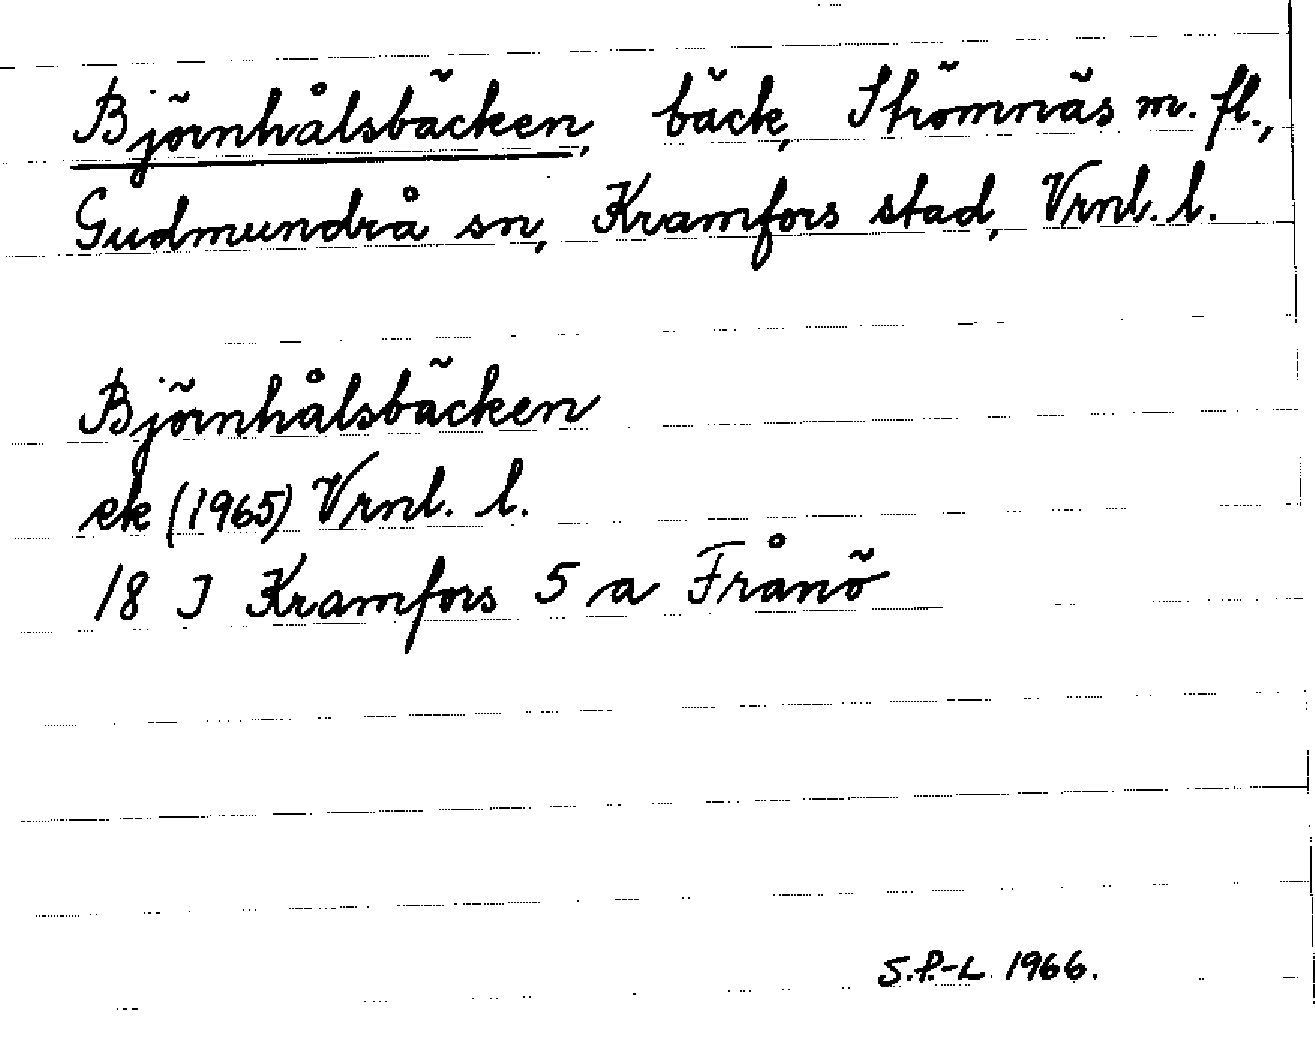 Björnhålsbäcken, bäck, Strömnäs m. fl.,
Gudmundrå sn, Kramfors stad, Vrnl. l.
Björnhålsbäcken
ek (1965) Vrnl. l.
18 J Kramfors 5 a Frånö
S.P.-L 1966.